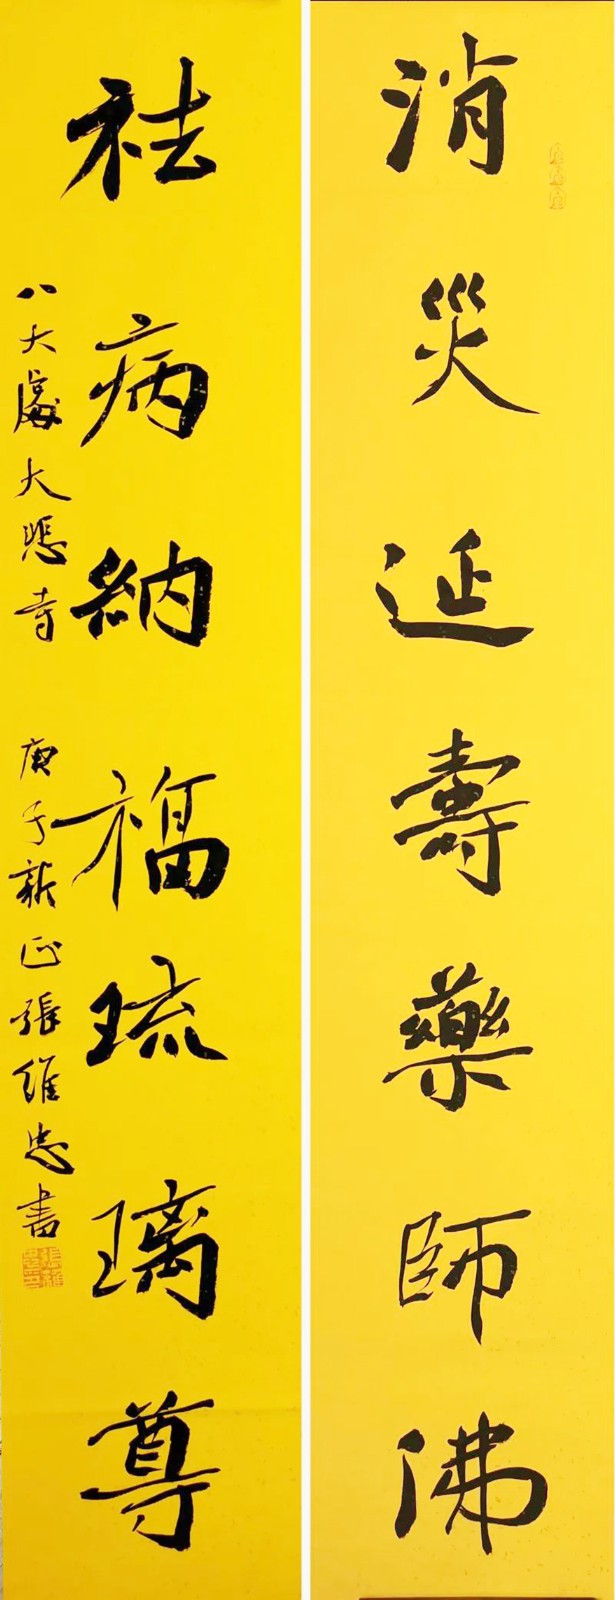 消災延壽藥師佛
祛病納福琉璃尊
八大處大悲寺 庚子新正張維忠書